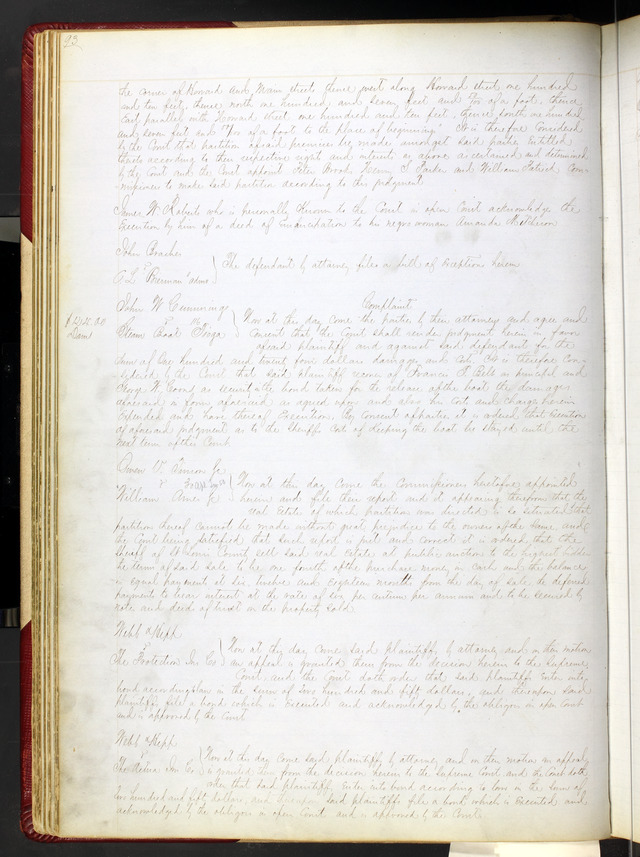 23
the corner of Howard and Main streets thence west along Howard street one hundred
and ten feet, thence north one hundred and seven feet and of a foot, thence
East parallel with Howard street one hundred and ten feet thence south one hundred
and seven feet and of a foot to the place of beginning It is therefore Considered
by the Court that partition of said premises be made amongst said parties Entitled
thereto according to their respective right and interest as above ascertained and determined
by the Court and the Court appoint Peter Brooks and William Com-
missioners to make said partition according to this judgment
James W Robert who is personally Known to the Court in open Court acknowledges the
Execution by him of a deed of Emancipation to his negro woman Amanda
John
The defendant by attorney files a bill of Exceptions herein
A L adm
John W Cummings Complaint
$124.00
Dam
vs Now at this day come the parties by their attorneys and agree and
Steam Boat Consent that the Court shall render judgment herein in favor
of said plaintiff and against said defendant for the
Sum of One Hundred and twenty four dollars damages and Cost, It is therefore Con-
sidered by the Court that said plaintiff recover of Francis as principal and
George W as security in the bond taken for the release of the boat the damages
aforesaid in form aforesaid as agreed upon and also his Cost and Charges herein
Expended and have thereof Execution. By Consent of parties it is ordered that Execution
of aforesaid judgment as to the Sheriffs Cost of Keeping the boat be stayed until the
next term of this Court
Owen
vs Now at this day come the Commissioners heretofore appointed
William herein and file their report and it appearing therefrom that the
real Estate of which partition was directed is so situated that
partition thereof cannot be made without great prejudice to the owners of the same and
the Court being satisfied that such report is just and correct it is ordered that the
Sheriff of St Louis County sell said real Estate at public auction to the highest bidder
the terms of said sale to be one fourth of the purchase money in cash and the balance
in equal payments at six, twelve and Eighteen months from the day of sale, the deferred
payments to bear interest at the rate of six per centum per annum and to be secured by
note and deed of trust on the property sold
Webb & Hepp
vs Now at this day come said plaintiffs by attorney and on their motion
The Protection Ins Co an appeal is granted them from the decision herein to the Supreme
Court and the Court doth order that said plaintiffs Enter into
bond according to law in the sum of hundred and fifty dollars, and thereupon said
plaintiffs file a bond which is Executed and acknowledged by the obligors in open Court
and is approved by the Court
Webb & Hepp
vs Now at this day come said plaintiffs by attorney and on their motion an appeal
The Ins Co is granted them from the decision herein to the Supreme Court and the Court doth
order that said plaintiffs Enter into bond according to law in the sum of
hundred and fifty dollars, and thereupon said plaintiffs file a bond which is Executed and
acknowledged by the obligors in open Court and is approved by the Court